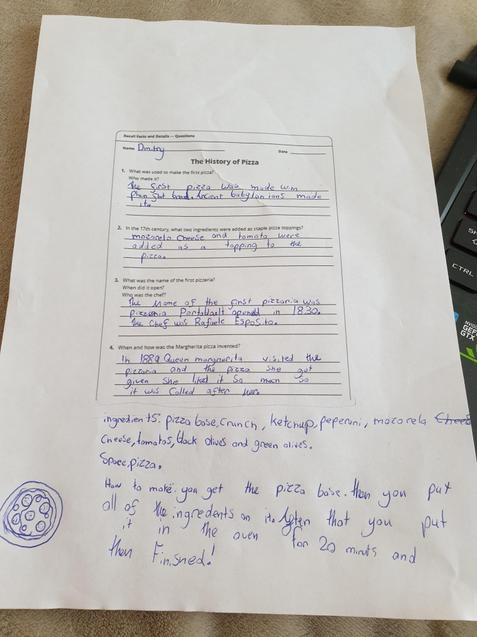 Recall Facts and Details — Questions
Name Dmitry Date
The History of Pizza
1. What was used to make the first pizza?
Who made it?
The first pizza was made
bread. Ancient babylonians made
it.
2. In the 17th century, what two ingredients were added as staple pizza toppings?
mozarela cheese and tomato were
added as a topping to the
pizza.
3. What was the name of the first pizzeria?
When did it open?
Who was the chef?
The name of the first pizzaria was
opened in 1830.
the chef was Rafuele Esposito.
4. When and how was the Margherita pizza invented?
In 1889 Queen margherita visited the
pizzaria and the pizza she got
given she liked it so much so
it was called after her.
ingredients: pizza base, crunch, ketchup, peperoni, mozorela
cheese, tomatos, black olives and green olives.
Space pizza.
How to make: you get the pizza base. then you put
all of the ingredients on it. After that you put
it in the oven for 20 minuts and
then Finished!
CTRL